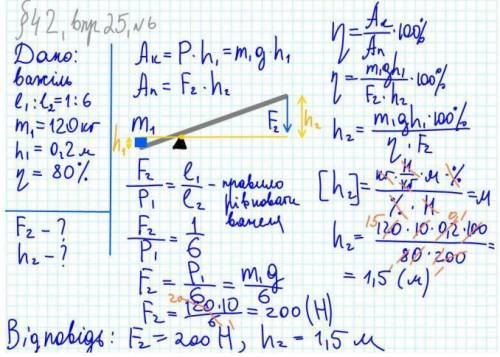 §42, впр 25, №6
Дано:
важіль
l₁:l₂=1:6
m₁=120кг
h₁=0,2м
η=80%
F₂-?
h₂-?
Aк=P·h₁=m₁g·h₁
Aп=F₂·h₂
m₁
h₁
F₂
h₂
F₂/P₁=l₁/l₂-правило рівноваги важеля
F₂/P₁=1/6
F₂=P₁/6=m₁g/6
F₂=120·10/6=200(H)
20
1
η=Aк/Aп·100%
η=m₁gh₁/F₂·h₂·100%
h₂=m₁gh₁·100%/η·F₂
[h₂]=кг·H/кг·м·%/%·H=м
15
0,1
h₂=120·10·0,2·100/80·200=
=1,5(м)
Відповідь: F₂=200H, h₂=1,5м